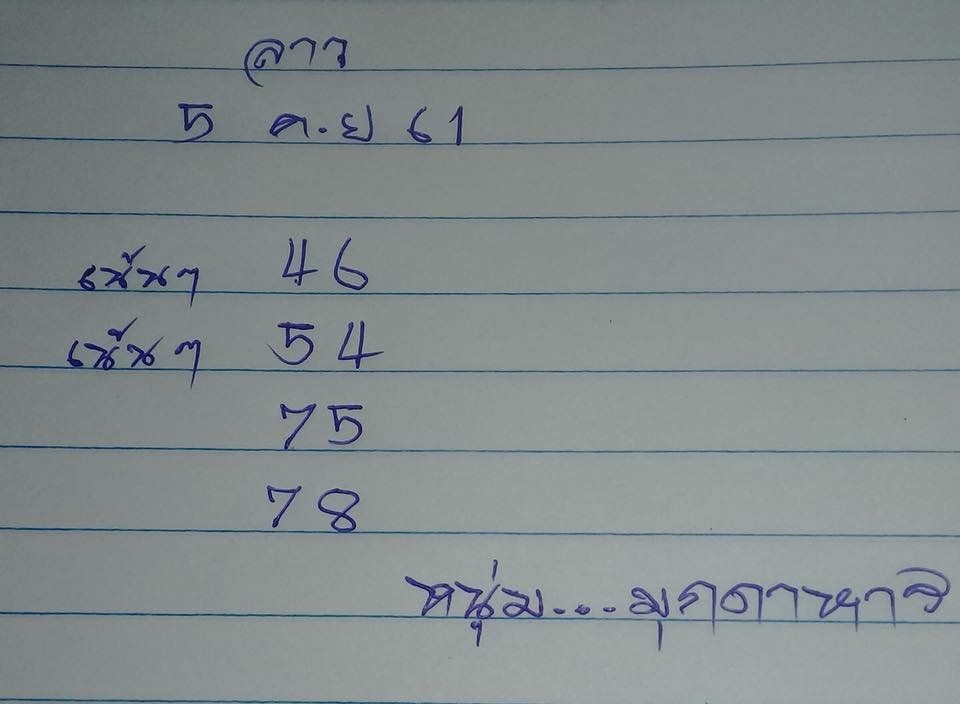 ลาว
5 ก.ย 61
เน้นๆ 46
เน้นๆ 54
75
78
หนุ่ม...มุกดาหาร